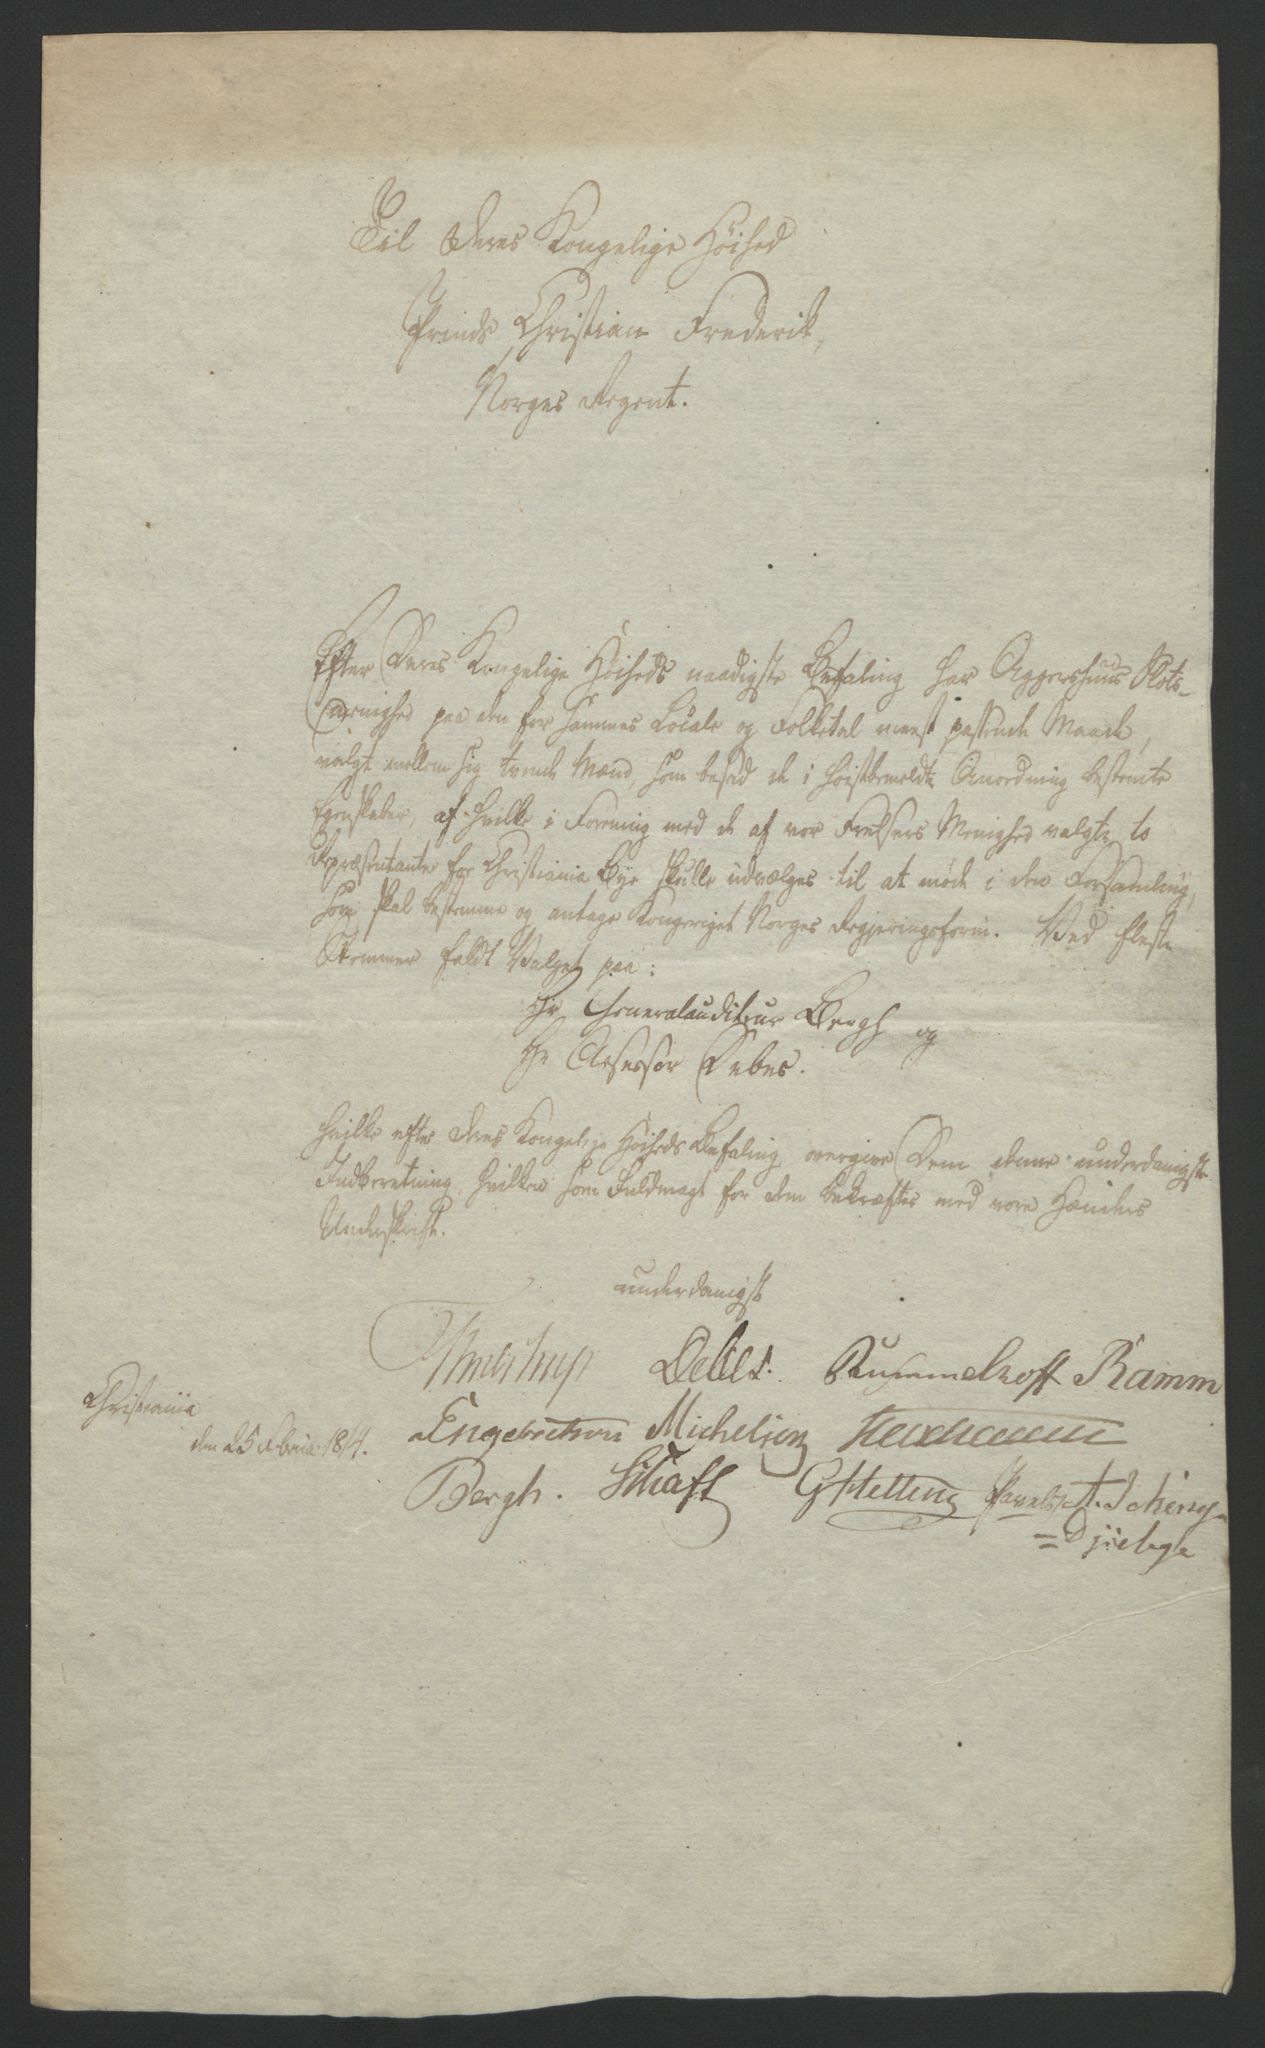 Til Deres Kongelige Höihed
Prinds Christian Frederik,
Norges Regent.
Efter Deres Kongelige Höiheds naadigste Befaling har Aggershuus Slots-
menighed paa den for sammes Locale og Folketal meest passende Maade,
valgt mellem sig tvende Mænd, som besad de i höistbemeldte Anordning bestemte
Egenskaber, af hvilke i Forening med de af vor Frelsers Menighed valgte, to
Repræsentante for Christiania Bye skulle udvælges til at möde i den Forsamling,
som skal bestemme og antage Kongeriget Norges Regjeringsform. Ved fleste
Stemmer faldt Valget paa:
Hr Generalauditeur Bergh og
Hr Assessor Debes.
hvilke efter Deres Kongelige Höiheds Befaling overgive Dem denne underdanigste
Indberetning, hvilken som Fuldmagt for dem bekræftes med vore Hænders
Underskrift.
underdanigst
Debes. Rummelhoff Ramm
Christiania
den 25 Februar 1814.
Engebrethsen Michelsen
Bergh. GHelling